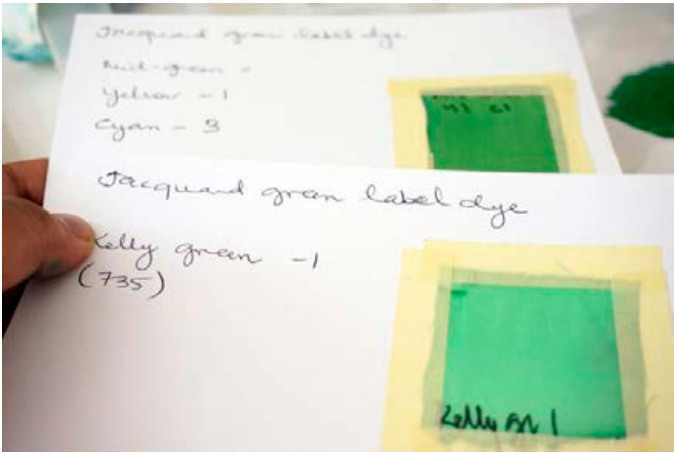 Jacquard green label dye
Mid-green -
Yellow - 1
Cyan - 3
Jacquard green label dye
Kelly green - 1
(735)
Kelly 1